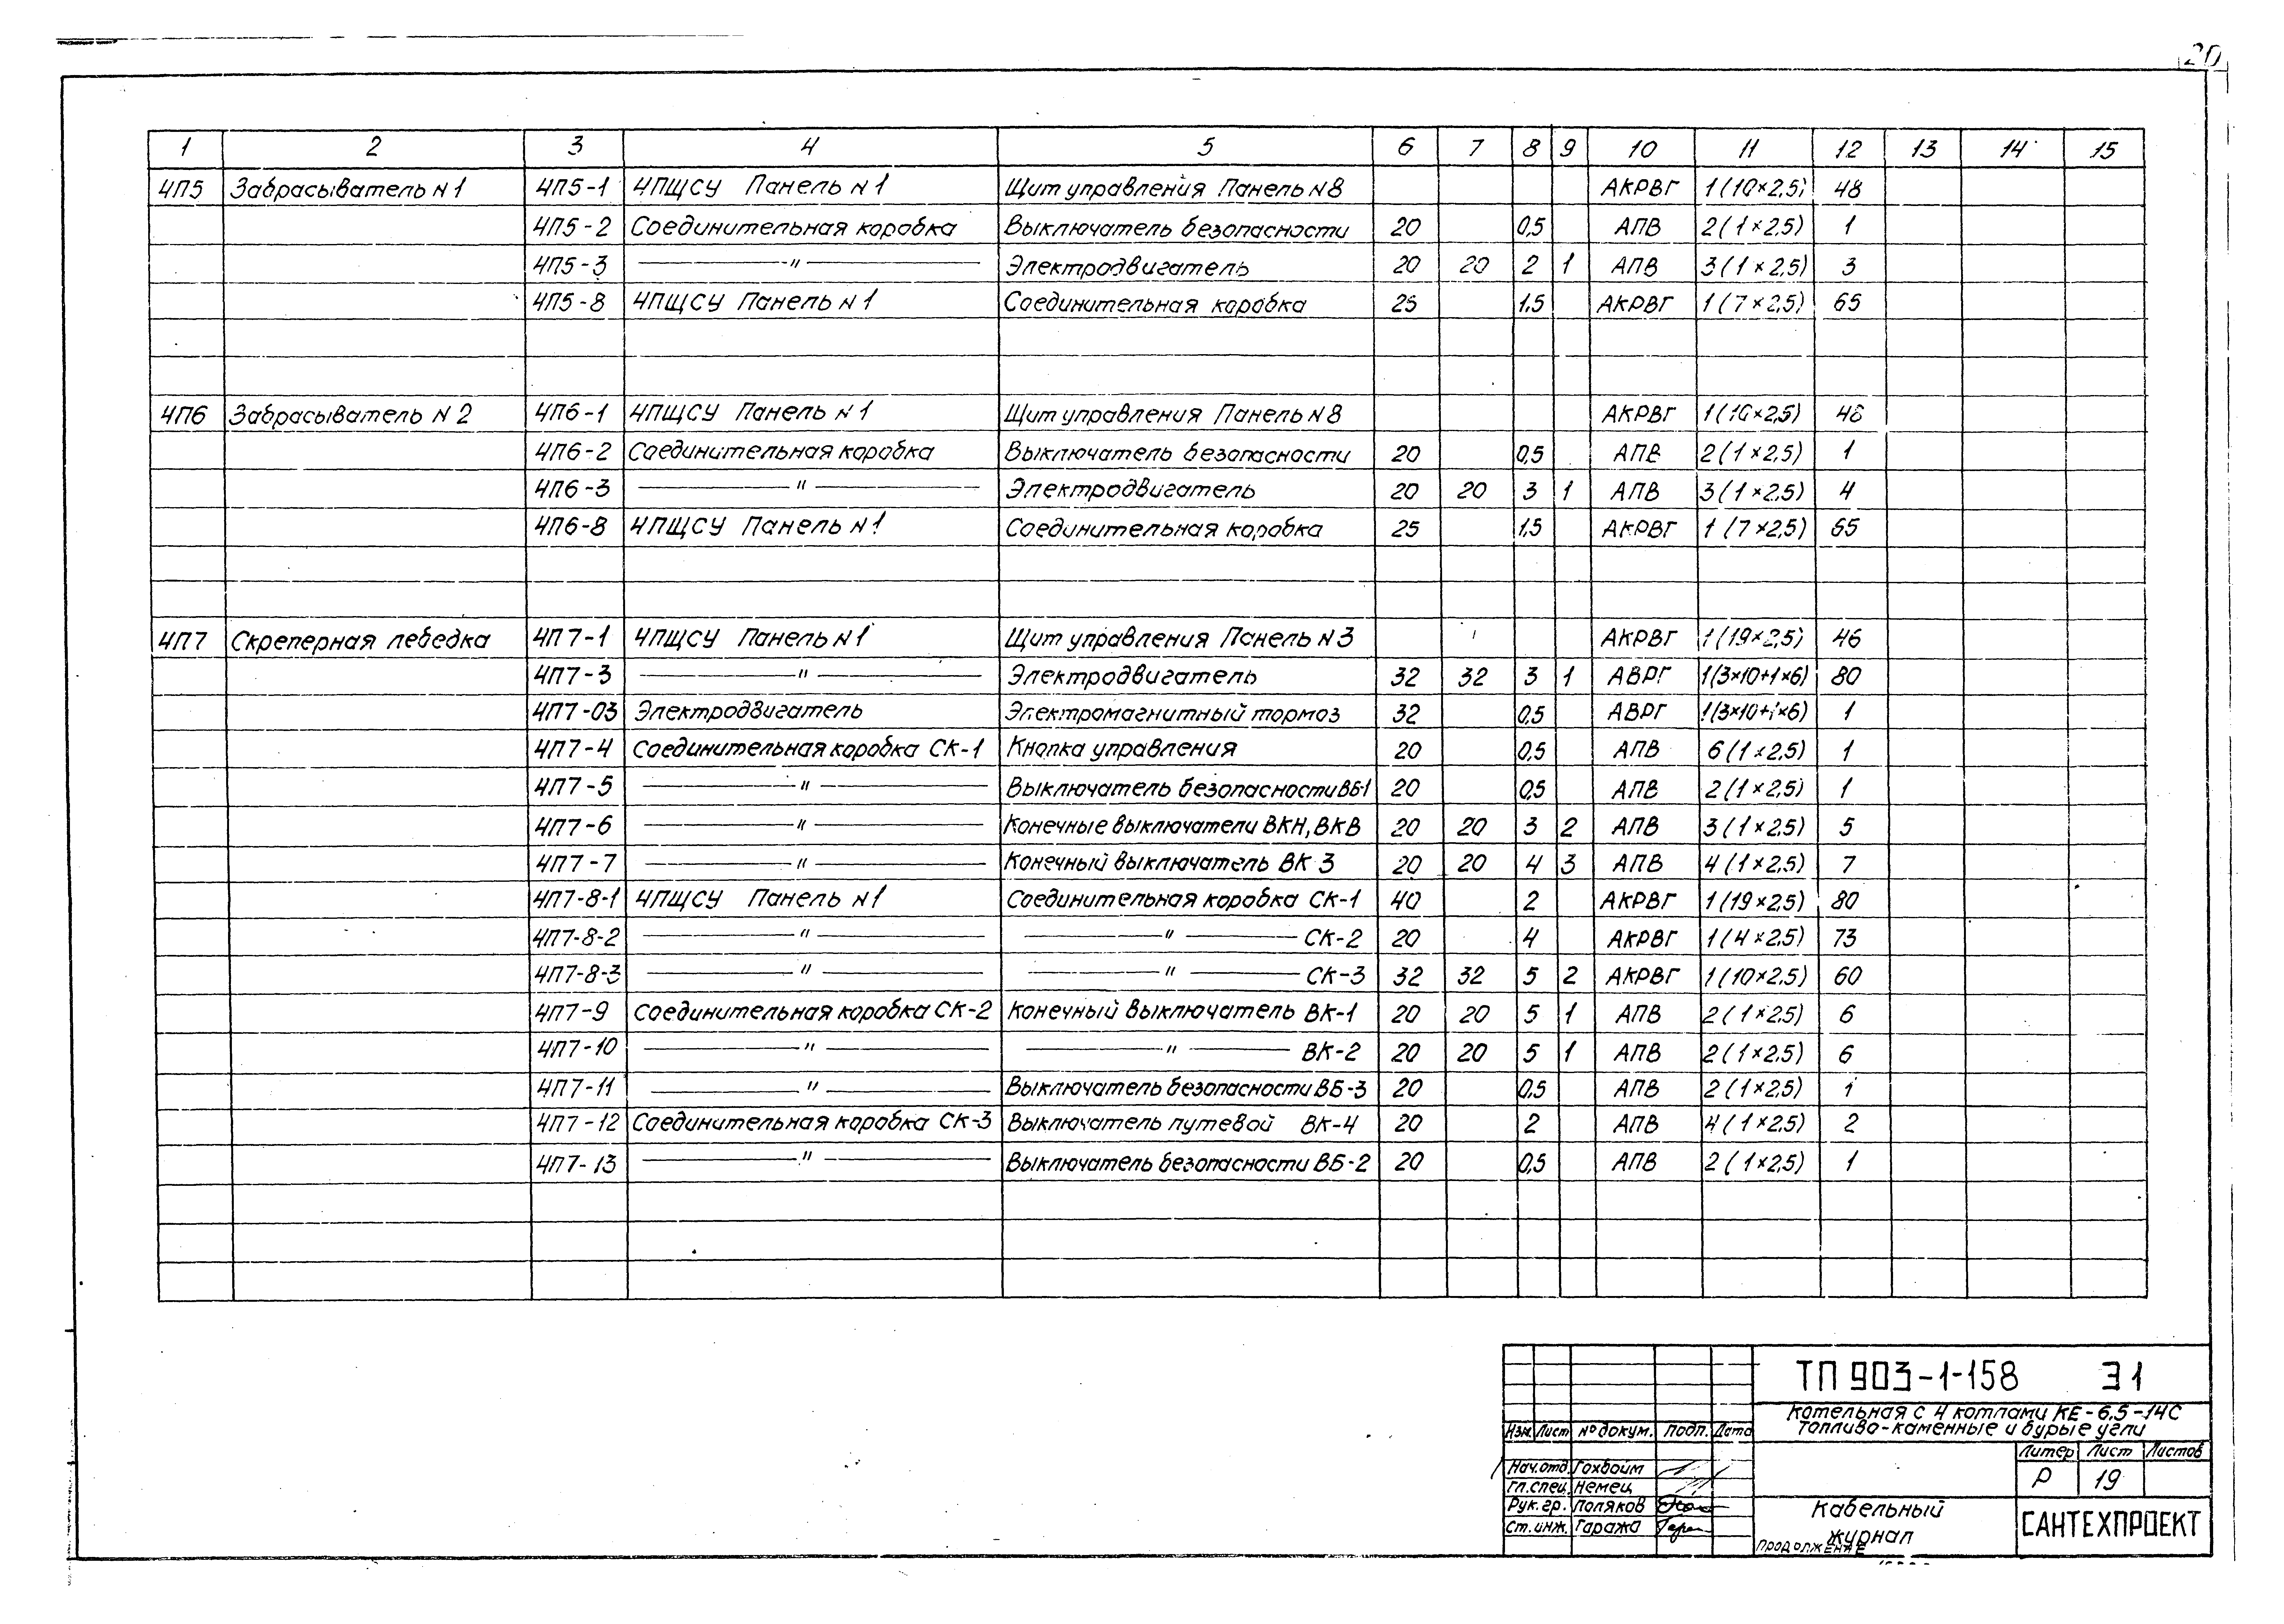 20
1 2 3 4 5 6 7 8 9 10 11 12 13 14 15
4П5 Забрасыватель N1 4П5-1 4ПЩСУ Панель N1 Щит управления Панель N8 АКРВГ 1(10×2,5) 48
4П5-2 Соединительная коробка Выключатель безопасности 20 0,5 АПВ 2(1×2,5) 1
4П5-3 —"— Электродвигатель 20 20 2 1 АПВ 3(1×2,5) 3
4П5-8 4ПЩСУ Панель N1 Соединительная коробка 25 1,5 АКРВГ 1(7×2,5) 65
4П6 Забрасыватель N2 4П6-1 4ПЩСУ Панель N1 Щит управления Панель N8 АКРВГ 1(10×2,5) 48
4П6-2 Соединительная коробка Выключатель безопасности 20 0,5 АПВ 2(1×2,5) 1
4П6-3 —"— Электродвигатель 20 20 3 1 АПВ 3(1×2,5) 4
4П6-8 4ПЩСУ Панель N1 Соединительная коробка 25 1,5 АКРВГ 1(7×2,5) 65
4П7 Скреперная лебедка 4П7-1 4ПЩСУ Панель N1 Щит управления Панель N3 АКРВГ 1(19×2,5) 46
4П7-3 —"— Электродвигатель 32 32 3 1 АВРГ 1(3×10+1×6) 80
4П7-03 Электродвигатель Электромагнитный тормоз 32 0,5 АВРГ 1(3×10+1×6) 1
4П7-4 Соединительная коробка СК-1 Кнопка управления 20 0,5 АПВ 6(1×2,5) 1
4П7-5 —"— Выключатель безопасности ВБ-1 20 0,5 АПВ 2(1×2,5) 1
4П7-6 —"— Конечные выключатели ВКН, ВКВ 20 20 3 2 АПВ 3(1×2,5) 5
4П7-7 —"— Конечный выключатель ВК 3 20 20 4 3 АПВ 4(1×2,5) 7
4П7-8-1 4ПЩСУ Панель N1 Соединительная коробка СК-1 40 2 АКРВГ 1(19×2,5) 80
4П7-8-2 —"— —"— СК-2 20 4 АКРВГ 1(4×2,5) 73
4П7-8-3 —"— —"— СК-3 32 32 5 2 АКРВГ 1(10×2,5) 60
4П7-9 Соединительная коробка СК-2 Конечный выключатель ВК-1 20 20 5 1 АПВ 2(1×2,5) 6
4П7-10 —"— —"— ВК-2 20 20 5 1 АПВ 2(1×2,5) 6
4П7-11 —"— Выключатель безопасности ВБ-3 20 0,5 АПВ 2(1×2,5) 1
4П7-12 Соединительная коробка СК-3 Выключатель путевой ВК-4 20 2 АПВ 4(1×2,5) 2
4П7-13 —"— Выключатель безопасности ВБ-2 20 0,5 АПВ 2(1×2,5) 1
ТП 903-1-158 Э1
Котельная с 4 котлами КЕ-6,5-14С
Топливо-каменные и бурые угли
Изм. Лист № докум. Подп. Дата
Литер Лист Листов
Р 19
Нач.отд. Гохбойм
Гл.спец. Немец
Рук.гр. Поляков
Ст.инж. Гаража
Кабельный
журнал
продолжение
САНТЕХПРОЕКТ